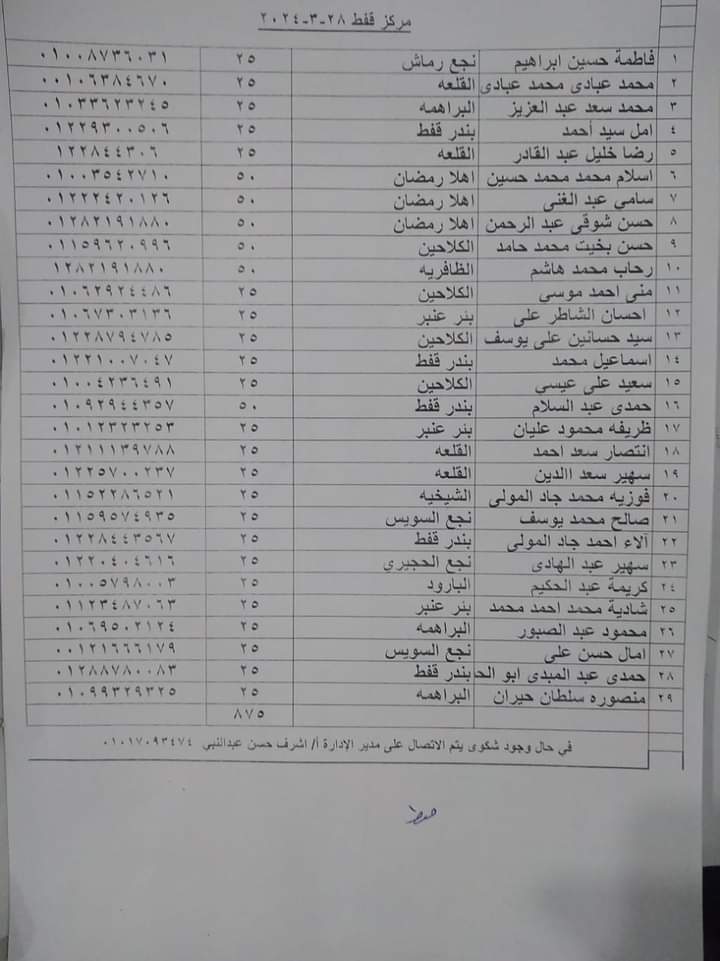 مركز قفط ٢٨-٣-٢٠٢٤
١ فاطمة حسين ابراهيم نجع رماش ٢٥ ٠١٠٠٨٧٣٦٠٣١
٢ محمد عبادى محمد عبادى القلعه ٢٥ ٠٠١٠٦٣٨٤٦٧٠
٣ محمد سعد عبد العزيز البراهمه ٢٥ ٠١٠٣٣٦٢٣٢٤٥
٤ امل سيد أحمد بندر قفط ٢٥ ٠١٢٢٩٣٠٠٥٠٦
٥ رضا خليل عبد القادر القلعه ٢٥ ١٢٢٨٤٤٣٠٦
٦ اسلام محمد محمد حسين اهلا رمضان ٥٠ ٠١٠٠٣٥٤٢٧١٠
٧ سامي عبد الغنى اهلا رمضان ٥٠ ٠١٢٢٢٤٢٠١٢٦
٨ حسن شوقى عبد الرحمن اهلا رمضان ٥٠ ٠١٢٨٢١٩١٨٨٠
٩ حسن بخيت محمد حامد الكلاحين ٥٠ ٠١١٥٩٦٢٠٩٩٦
١٠ رحاب محمد هاشم الظافريه ٥٠ ١٢٨٢١٩١٨٨٠
١١ منى احمد موسى الكلاحين ٢٥ ٠١٠٦٢٩٢٤٤٨٦
١٢ احسان الشاطر على بئر عنبر ٢٥ ٠١٠٦٧٣٠٣١٣٦
١٣ سيد حسانين على يوسف الكلاحين ٢٥ ٠١٢٢٨٧٩٤٧٨٥
١٤ اسماعيل محمد بندر قفط ٢٥ ٠١٢٢١٠٠٧٠٤٧
١٥ سعيد على عيسي الكلاحين ٢٥ ٠١٠٠٤٢٣٦٤٩١
١٦ حمدى عبد السلام بندر قفط ٥٠ ٠١٠٩٢٩٤٤٣٥٧
١٧ ظريفه محمود عليان بئر عنبر ٢٥ ٠١٠١٢٣٢٣٢٥٣
١٨ انتصار سعد احمد القلعه ٢٥ ٠١٢١١١٣٩٧٨٨
١٩ سهير سعد االدين القلعه ٢٥ ٠١٢٢٥٧٠٠٢٣٧
٢٠ فوزيه محمد جاد المولى الشيخيه ٢٥ ٠١١٥٢٢٨٦٥٢١
٢١ صالح محمد يوسف نجع السويس ٢٥ ٠١١٥٩٥٧٤٩٣٥
٢٢ آلاء احمد جاد المولى بندر قفط ٢٥ ٠١٢٢٨٤٤٣٥٦٧
٢٣ سهير عبد الهادى نجع الحجيري ٢٥ ٠١٢٢٠٤٠٤٦١٦
٢٤ كريمة عبد الحكيم البارود ٢٥ ٠١٠٠٥٧٩٨٠٠٣
٢٥ شادية محمد احمد محمد بئر عنبر ٢٥ ٠١١٢٣٤٨٧٠٦٣
٢٦ محمود عبد الصبور البراهمه ٢٥ ٠١٠٦٩٥٠٢١٢٤
٢٧ امال حسن على نجع السويس ٢٥ ٠٠١٢١٦٦٦١٧٩
٢٨ حمدى عبد المبدى ابو الح بندر قفط ٢٥ ٠١٢٨٨٧٨٠٠٨٣
٢٩ منصوره سلطان حيران البراهمه ٢٥ ٠١٠٩٩٣٢٩٣٢٥
٨٧٥
في حال وجود شكوى يتم الاتصال على مدير الإدارة أ/ اشرف حسن عبدالنبي ٠١٠١٧٠٩٣٤٧٤